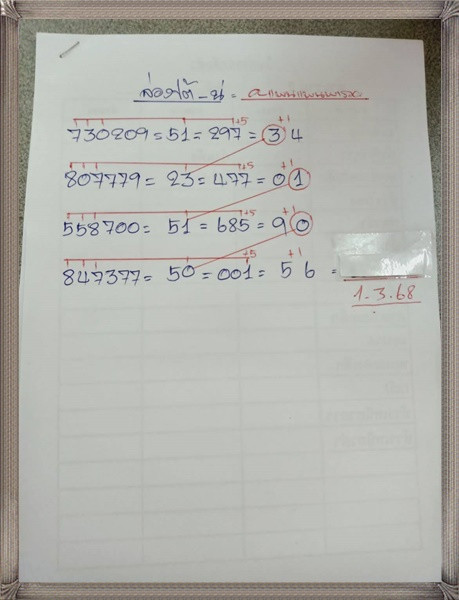 730209 = 51 = 297 = 3 4
+5 +1
807779 = 23 = 477 = 0 1
+5 +1
558700 = 51 = 685 = 9 0
+5 +1
847377 = 50 = 001 = 5 6 =
+5 +1
1.3.68